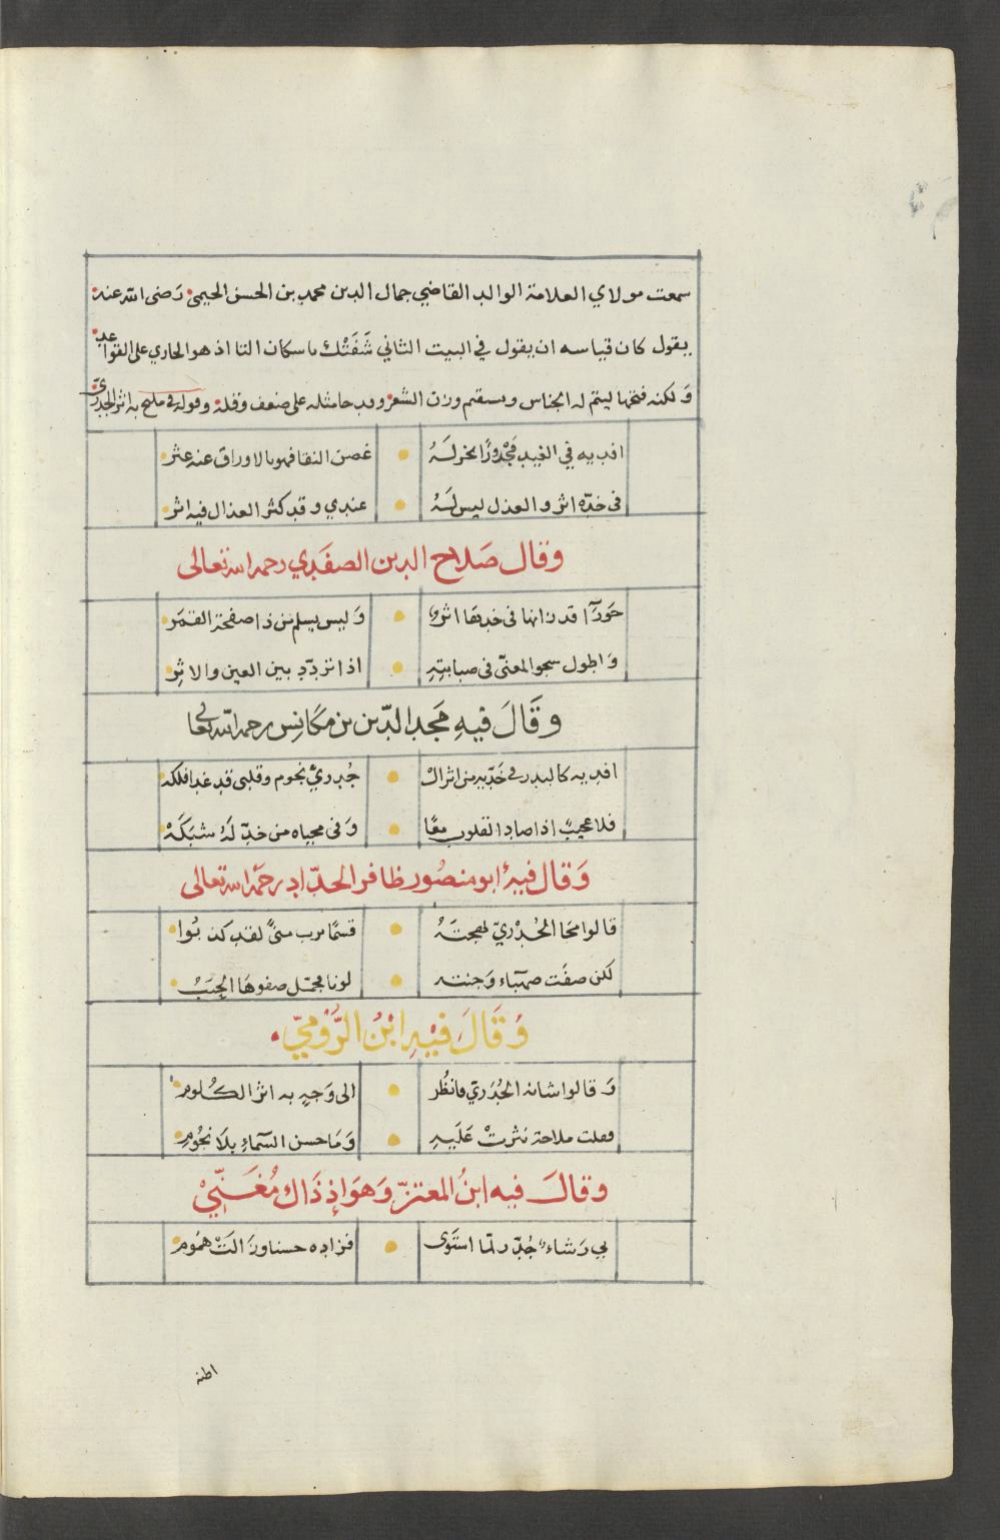 سمعت مولاي العلامة الوالد القاضي جمال الدين محمد بن الحسن الحيمي رَضى الله عنه
يقول كان قياسه ان يقول في البيت الثاني شَفَتْك باسكان التا اذ هو الجاري على القواعد
وَلكنه فتحها ليتم له الجناس ويستقيم وزن الشعر وقد جا مثله على ضعف وقلة وقوله في مليح به اثر الجدرى
افديه في الغيد مَجْدُورًا يخر لَهُ غصن النقا فهو بالاوراق عنه عثر
فى خدّه اثر والعذل ليس لَهُ عندي وقد كثر العذال فيه اثر
وقال صَلاح الدين الصفَدي رحمه الله تعالى
حَورآ قد زانها فى خدهَا اثر وَليس يسلم من ذا صفحة القمَر
وَاطول سجو المعنّى فى صبابتِهِ اذا تردّد بين العين والاثِر
وقَالَ فيهِ مَجد الدّين بن مكَانِس رحمه الله تعالى
افديه كالبدر في خَدّيه من اثر الـ جُدريّ نجوم وقلبى قد غدا فلكه
فلا عجيبٌ اذا صاد القلوب معًا وَفى محياه من خدّ لَهُ شبَكَهْ
وَقال فيهِ ابو منصُور ظافر الحدّاد رحمَه الله تعالى
قالوا محَا الجُدْريّ لهجتَهُ قسمًا برب منىً لقد كذبُوا
لكن صفَت صهبآء وَجنته لونا فجمّل صفوهَا الحبَبُ
وَقَالَ فيْهِ ابْنُ الرُّوْميّ
وَقالوا شانه الجُدَري فانظُر الى وَجهٍ به اثر الكُلومِ
فقلت ملاحة نثرتْ عَلَيهِ وَمَا حسن السّماءِ بلَا نجُومِ
وقالَ فيه ابنُ المعتزّ وَهوَ إذ ذَاك مُغَنّيْ
لي رَشاء جُدّر لمّا استَوى فزاده حسنا وزَالَتْ همُوم
اظنه